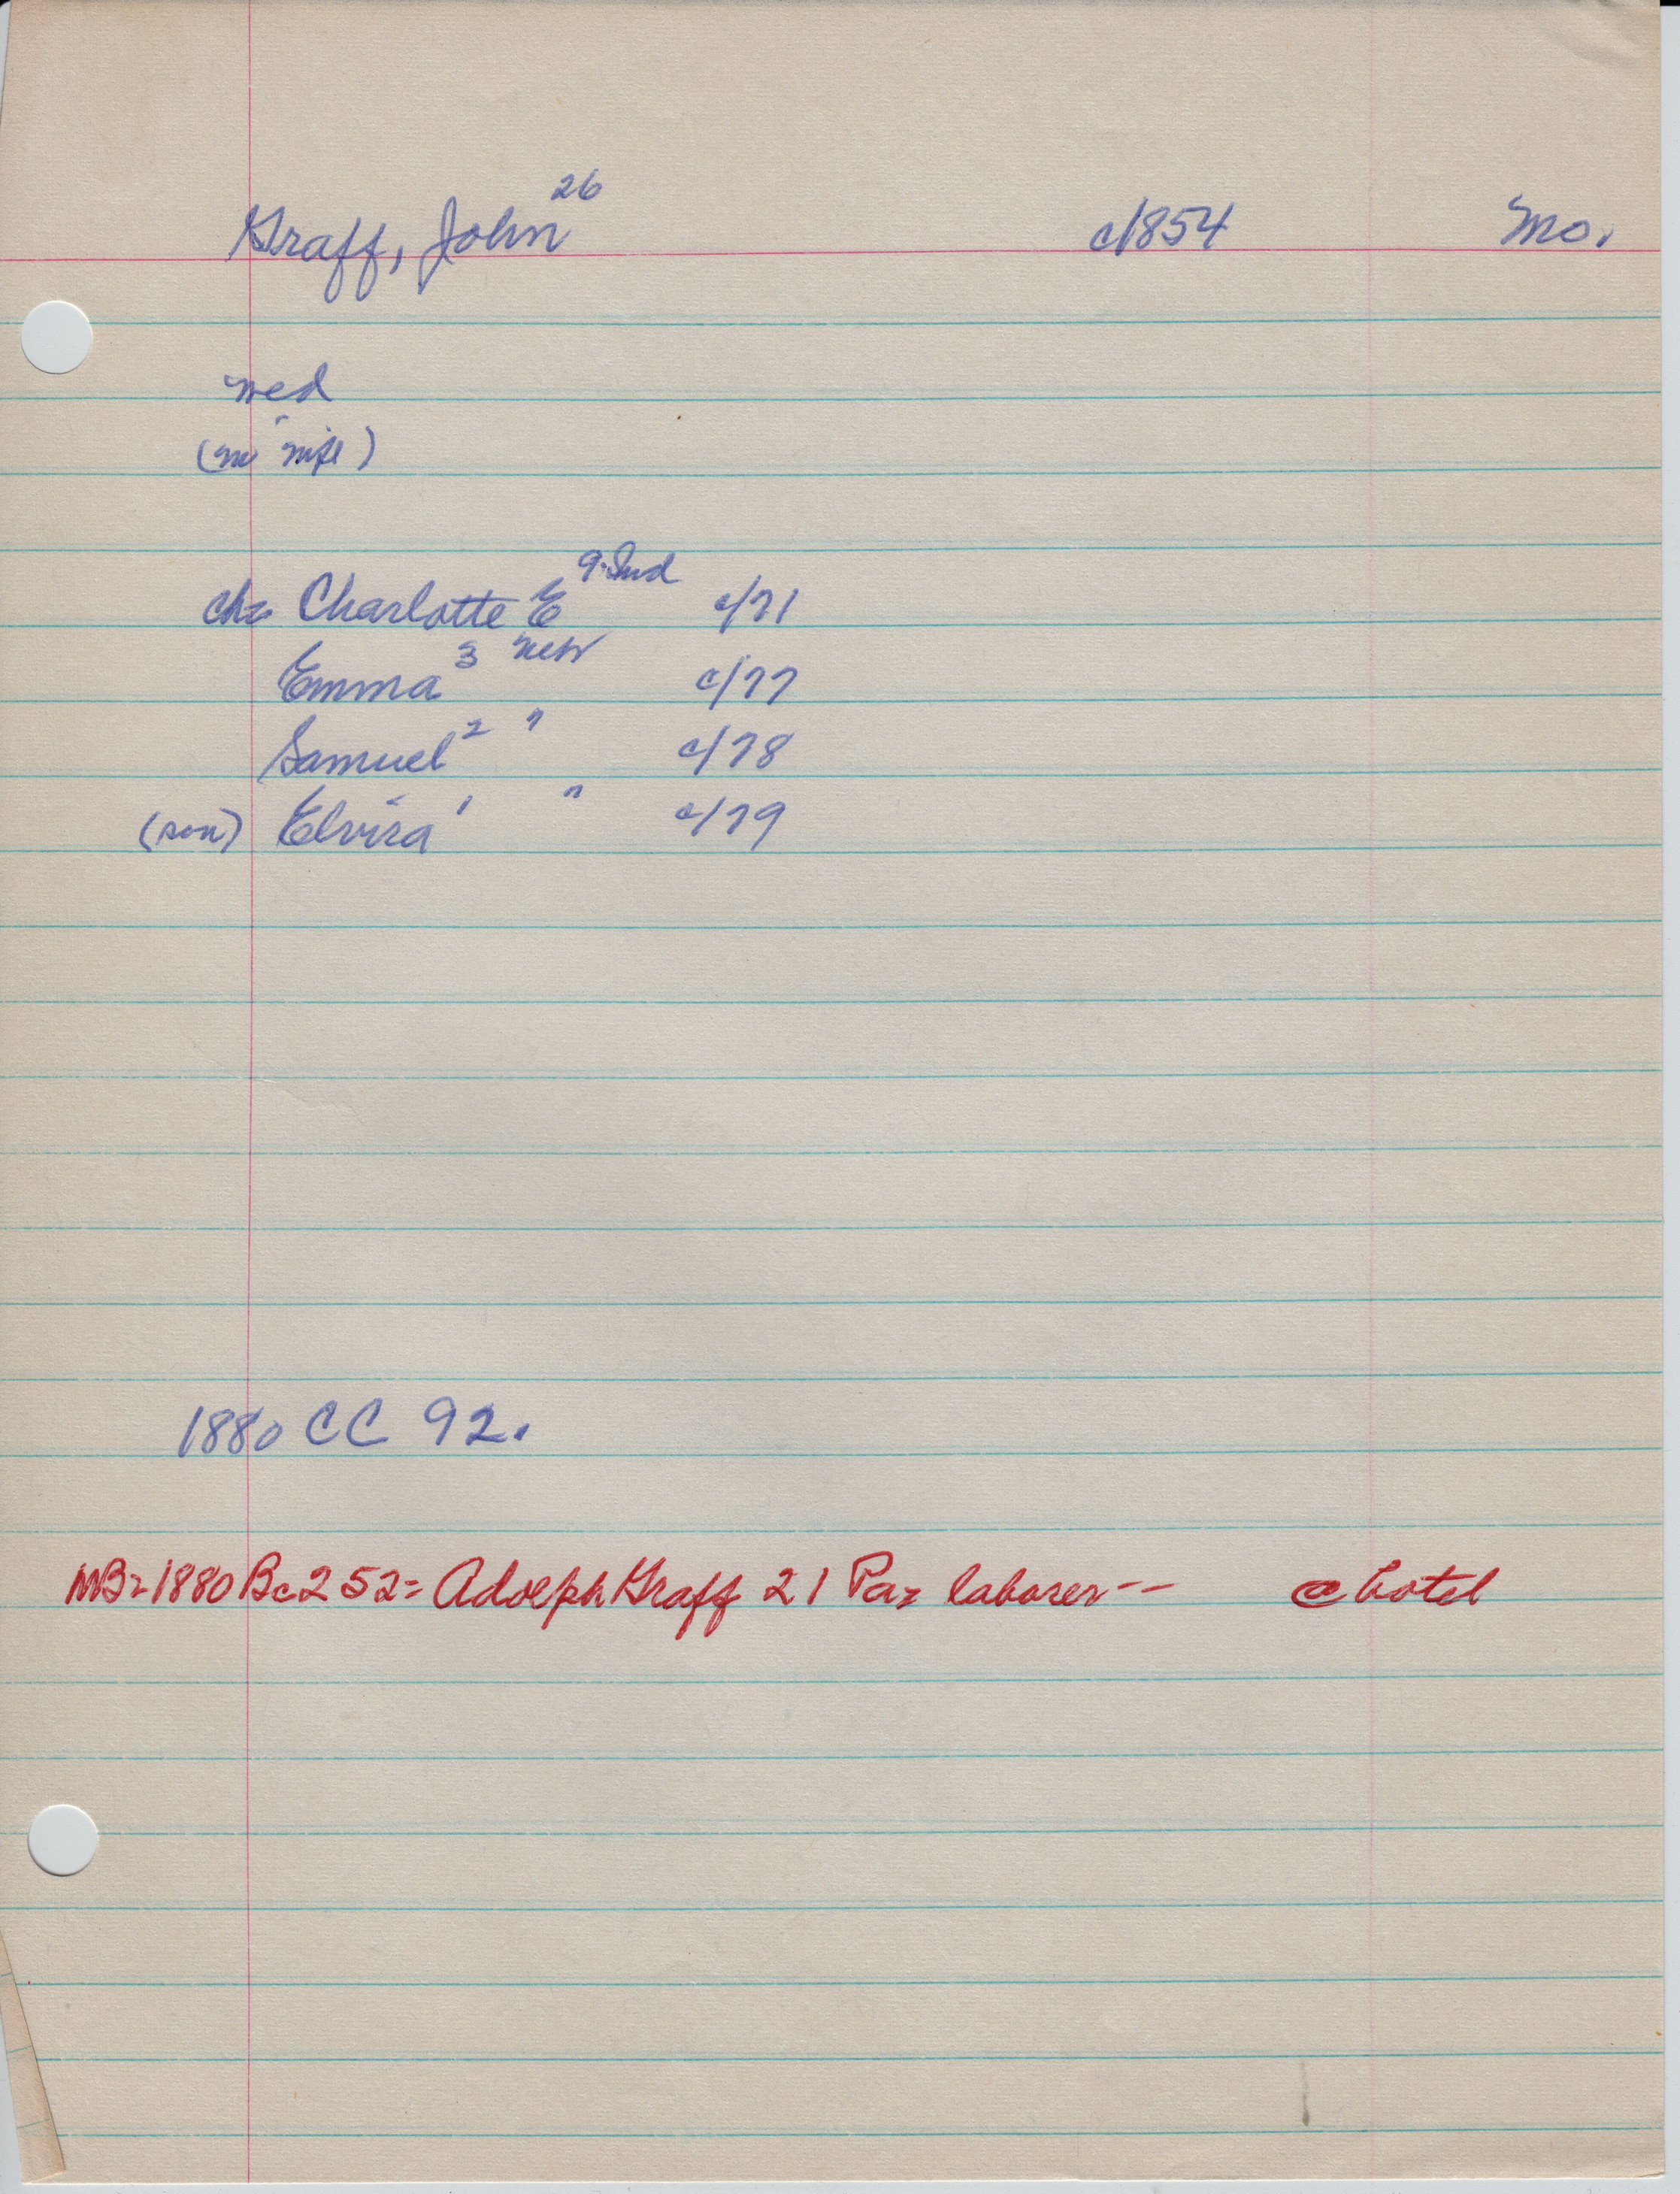 Graff, John 26 c/1854 Mo.
wed
(no wife)
ch= Charlotte E 9-Ind c/71
Emma 3 Neb c/77
Samuel 2 " c/78
(son) Elvira 1 " c/79
1880 CC 92.
NB=1880 Bc252= Adolph Graff 21 Pa= laborer-- @ hotel